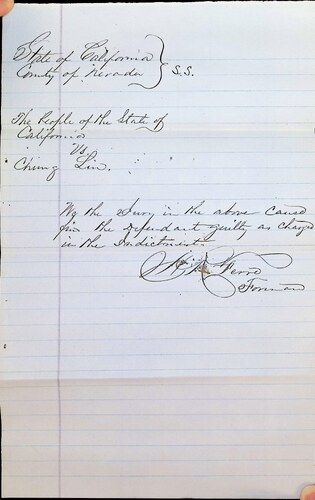 State of California
County of Nevada } S.S.
The People of the State of
California
Vs.
Ching Lin.
We the Jury in the above caused
fin the Defendant guilty as charged
in the Indictment
Ferre
Foreman